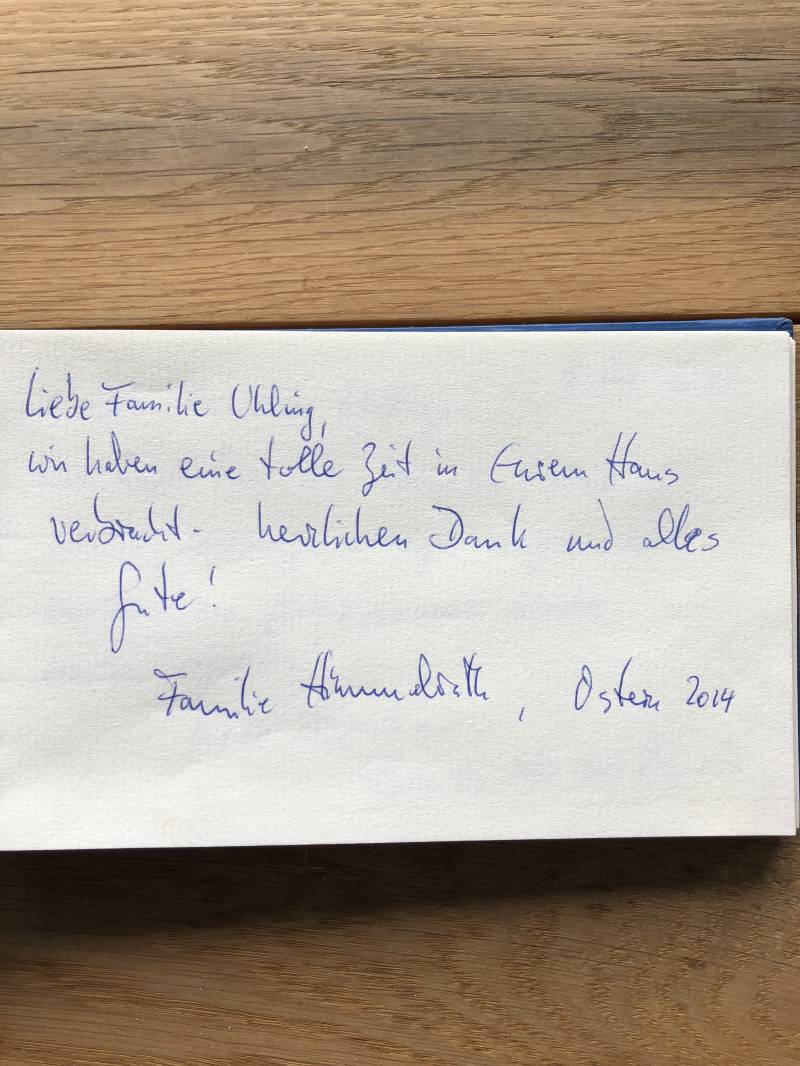 Liebe Familie Uhling,
wir haben eine tolle Zeit in Eurem Haus
verbracht - herzlichen Dank und alles
Gute!
Familie Himmelrath, Ostern 2014